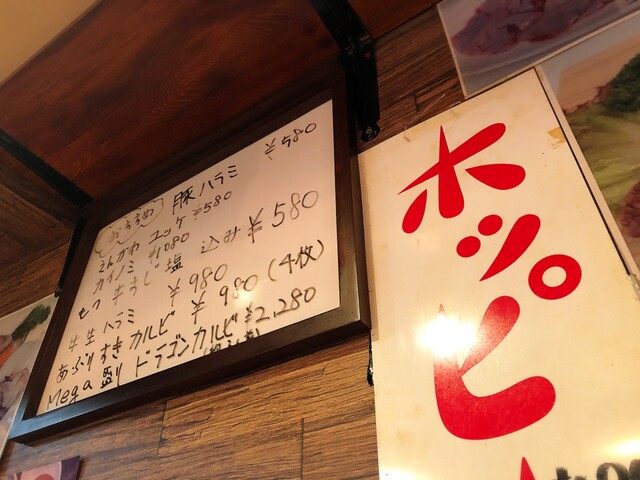 おすすめ 豚ハラミ ¥580
えんがわ ユッケ ¥580
カイノミ ¥1080
もつ 牛すじ 塩 込み ¥580
牛生 ハラミ ¥980
あぶりすきカルビ ¥980(4枚)
Mega盛り ドラゴンカルビ ¥2,280
ホッピ